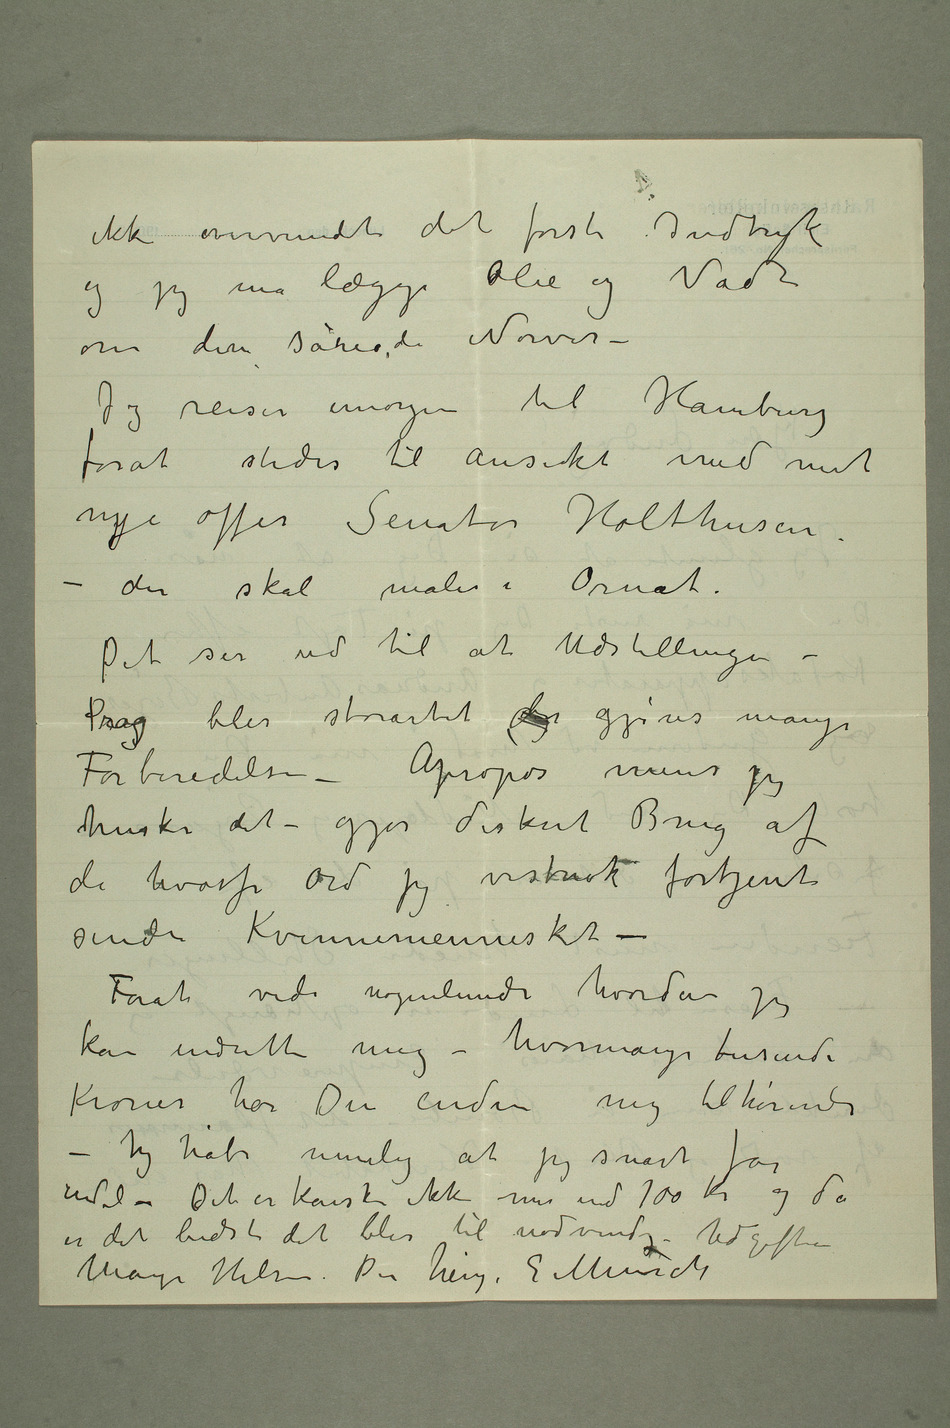 4.
ikke overvundet det første Indtryk
og jeg må lægge Olie og Vadt
om den sårede Nerver –
Jeg reiser imorgen til Hamburg
forat stedes til ansikt med mit
nye offer Senator Holthusen.
– der skal males i Ornat.
Det ser ud til at Udstillingen –
Prag blir storartet der gjøres mange
Forberedelser – Apropos mens jeg
husker det – gjør diskret Brug af
de hvasse Ord jeg vistnok fortjent
sender Kvinnemennesket –
Forat vide nogenlunde hvordan jeg
kan indrette mig – hvormange tusende
Kroner har Du endnu mig tilhørende
– Jeg håber nemlig at jeg snart får
endel – Det er kanske ikke mer end 700 Kr og da
er det bedst det blir til nødvendige Udgifter
Mange Hilsner. Din heng. E Munch